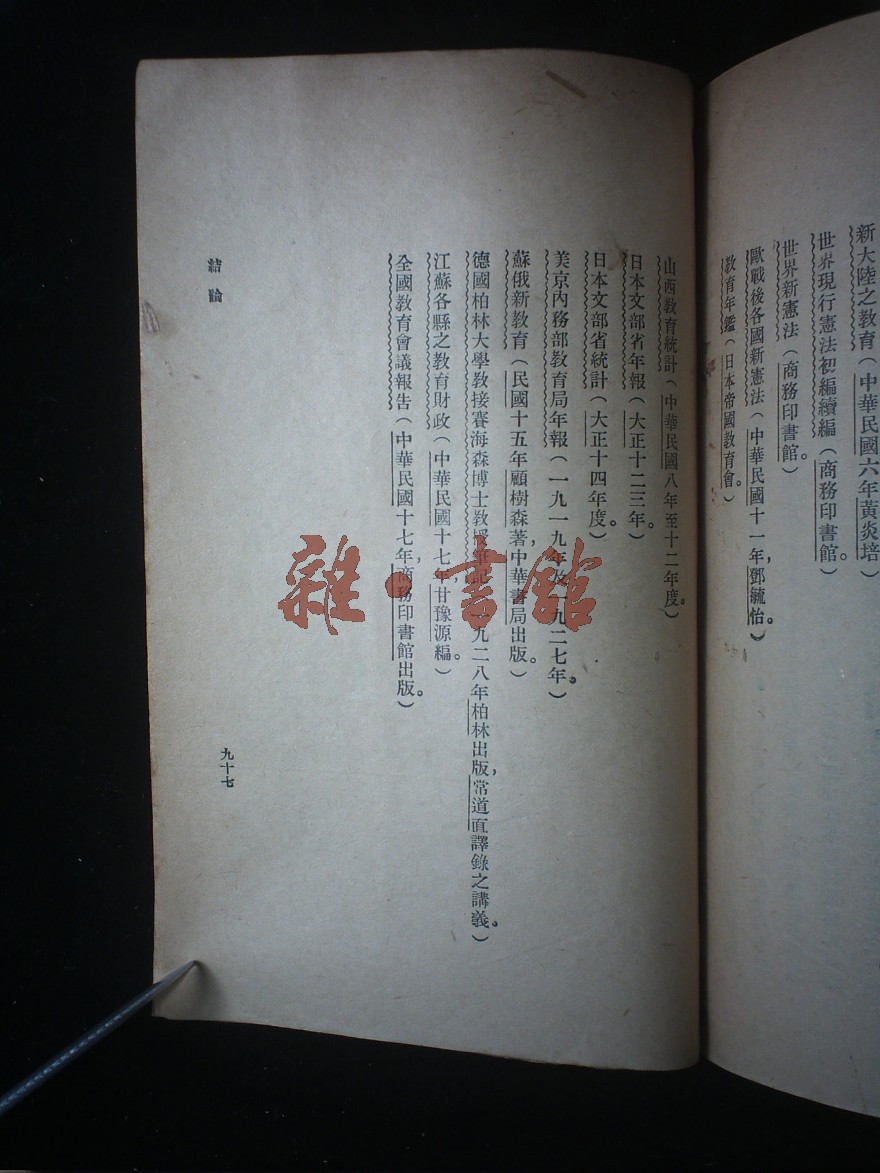 新大陸之教育(中華民國六年黃炎培)
世界現行憲法初編續編(商務印書館。)
世界新憲法(商務印書館。)
歐戰後各國新憲法(中華民國十一年,鄧毓怡。)
教育年鑑(日本帝國教育會。)
山西教育統計(中華民國八年至十二年度。)
日本文部省年報(大正十二三年。)
日本文部省統計(大正十四年度。)
美京內務部教育局年報(一九一九年及一九二七年。)
蘇俄新教育(民國十五年顧樹森著,中華書局出版。)
德國柏林大學教接賽海森博士教授筆記(一九二八年柏林出版,常道直譯錄之講義。)
江蘇各縣之教育財政(中華民國十七年,甘豫源編。)
全國教育會議報告(中華民國十七年,商務印書館出版。)
結論
九十七
雜·書館